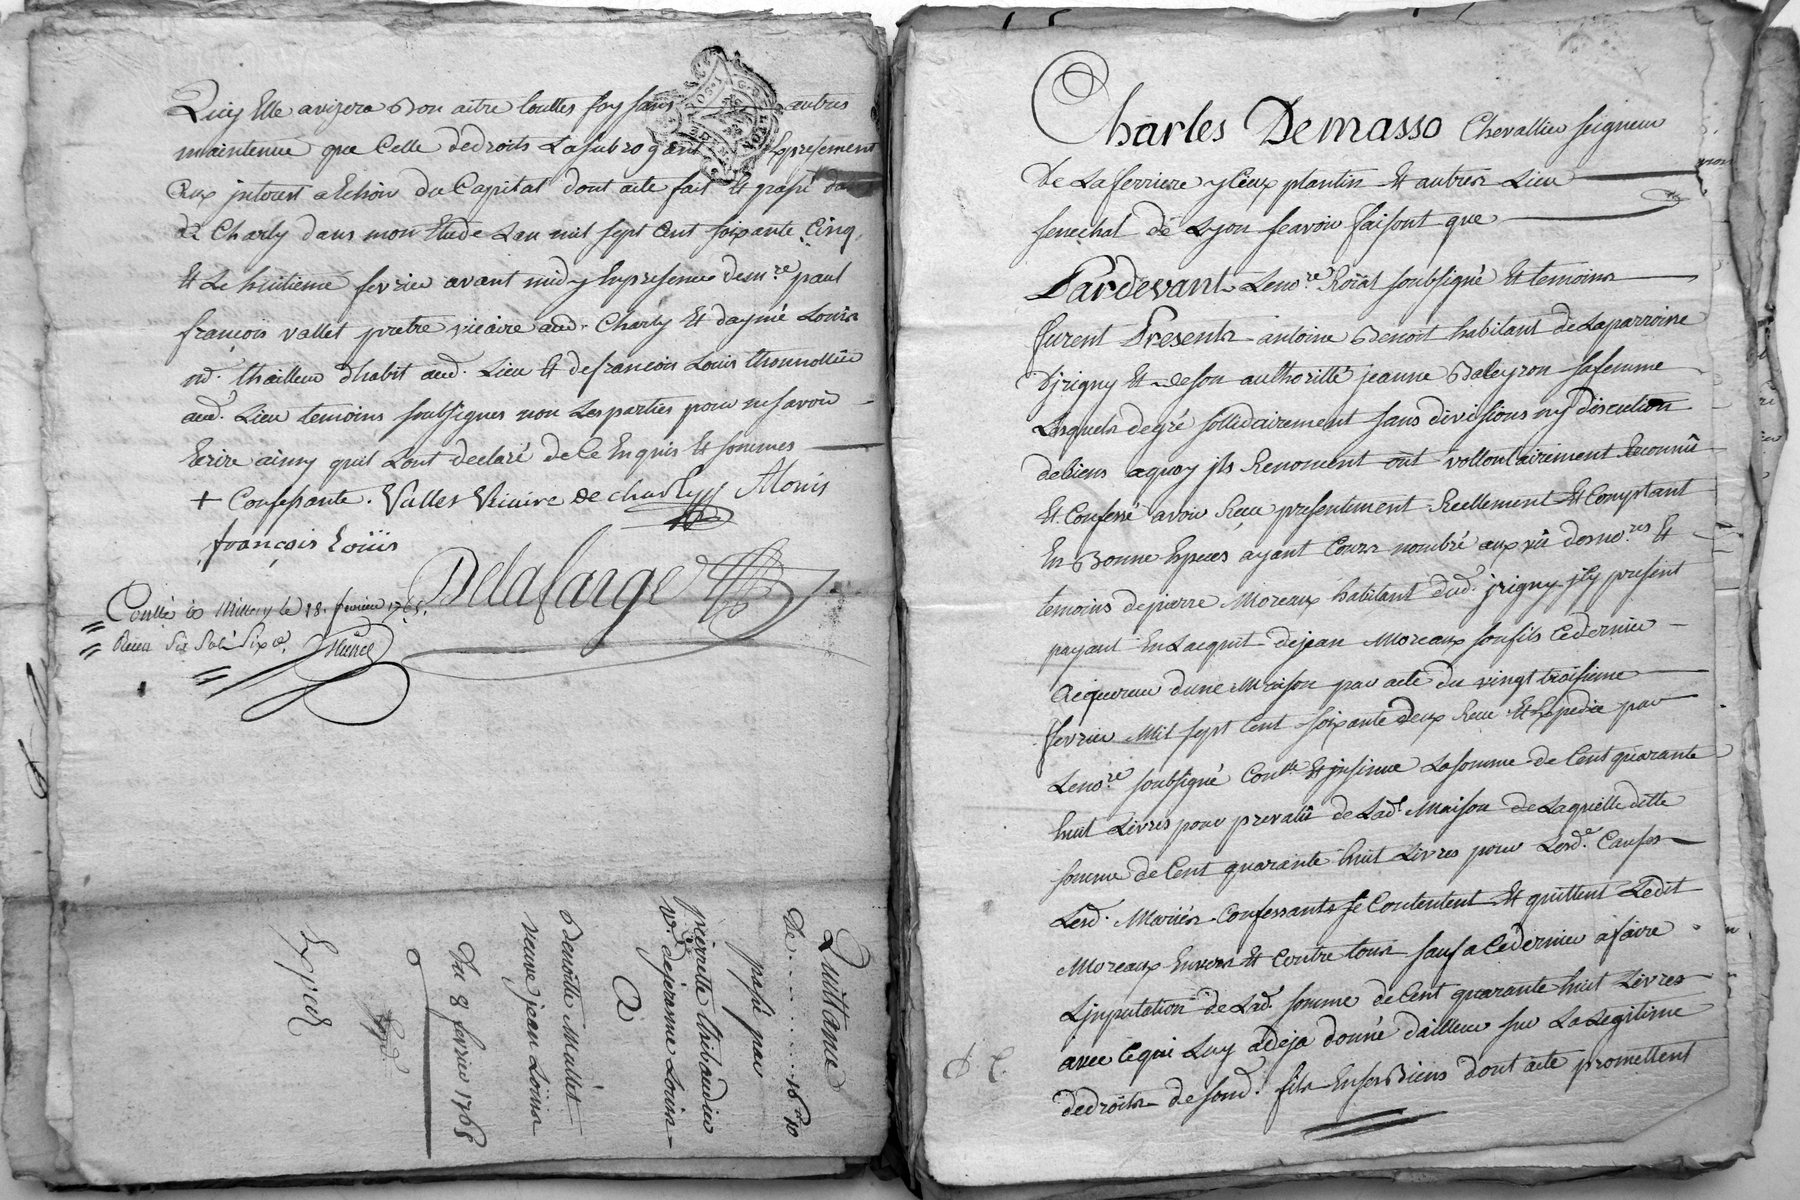 Quicy Elle avizera Bon aitre touttes foy sans autres
maintenue que Celle dedroits La subrogeant Expressement
aux interest a Echoir du Capital dont acte fait Et passé
de Charly dans mon Etude Lan mil sept Cent soixante Cinq
Et Le huitieme fevrier avant midy En presence de m.re paul
françois vallet pretre vicaire aud. Charly Et daymé Louis
thailleur dhabit aud. Lieu Et defrancois Louis
aud. Lieu temoins soubsignes non Les parties pour ne savoir
Ecrire ainsy quil sont declaré de Ce Enquis Et sommes
+ Confessante. Vallet Vicaire de charly ALouis
françois Loüis
Delafarge
Conllé à Millery le 18. fevrier 1765.
Recu Six Sols Six d.
Quittance
De 148 10
passé par
pierrette thibaudier
v.e dejeranne Louis
A
Benoitte Mullet
veuve jean Louis
Du 8 fevrier 1765
Exped.
Charles Demasso Chevallier seigneur
de La ferriere y Ceux plantin Et autres Lieu
senechal de Lyon scavoir faisont que
Pardevant Leno.re Roïal soubsigné Et temoins
furent Presents antoine Benoit habitant de Laparroisse
D'jrigny Et de son authoritté jeanne Baleyron safemme
Lesquels degré sollidairement sans divissions ny discution
debiens aquoy ils Renoncent ont vollontairement Reconnû
Et Confessé avoir Receu presentement Reellement Et Comptant
En Bonne Especes ayant Cours nombré aux vû desno.res Et
temoins depierre Moreaux habitant dud. jrigny jcy present
payant En Lacquit dejean Moreaux son fils Cedernier
acquereur dune Maison par acte du vingt troisieme
fevrier Mil sept Cent soixante deux Receu Et Expedié par
Leno.re soubsigné Conllé Et jnsinué La somme de Cent quarante
huit Livres pour prevalû de Lad. Maison de Laquelle ditte
somme de Cent quarante huit Livres pour Lesd. Causes
Lesd. Mariés Confessants se Contentent Et quittent Ledit
Moreaux Envers Et Contre tous sauf a Cedernier afaire
Limputation de Lad. somme de Cent quarante huit Livres
avec Cequi Luy adeja donné dailleur sur La Legitime
dedroits de sond. fils En ses Biens dont acte promettent